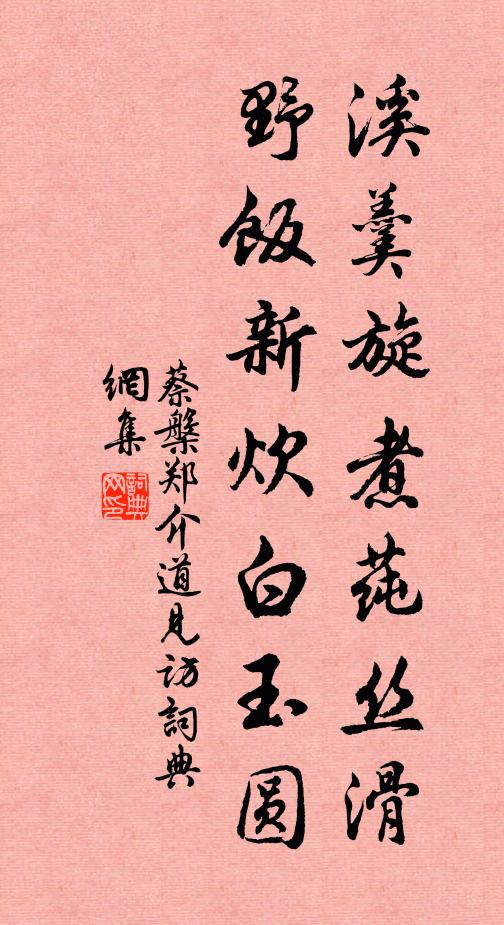 溪羹旋煮莼丝滑
野飯新炊白玉圆
蔡槃郑介道見访詞典
網集
詞典
网印